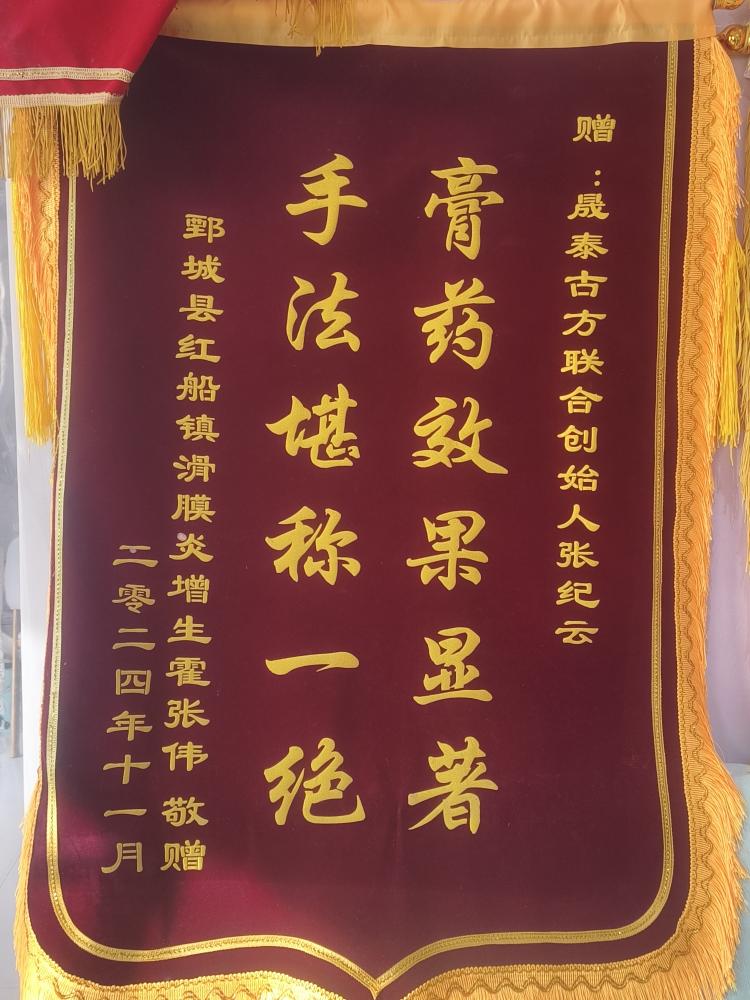 赠：晟泰古方联合创始人张纪云
膏药效果显著
手法堪称一绝
鄄城县红船镇滑膜炎增生霍张伟 敬赠
二零二四年十一月